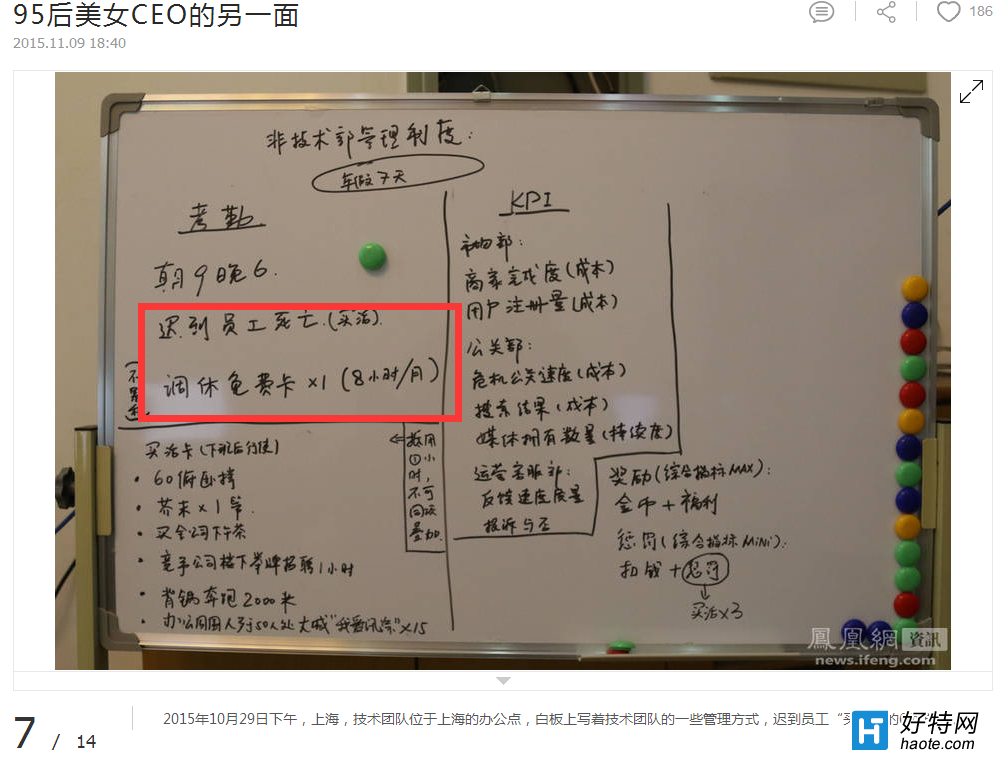 95后美女CEO的另一面
2015.11.09 18:40
186
非技术部管理制度:
车做7天
考勤
朝9晚6.
迟到员工死亡.(买活).
调休免费卡×1(8小时/月)
买活卡(下班后行使)
· 60俯卧撑
· 芥末×1管.
· 买全公司下午茶
· 竞手公司楼下举牌招聘1小时
· 背锅奔跑2000米
· 办公周围人多于50人处大喊
×15
小
时,
不可
叠加.
KPI
市场部:
商家完成度(成本)
用户注册量(成本)
公关部:
危机公关速度(成本)
搜索结果(成本)
媒体拥有数量(持续度)
运营客服部:
反馈速度质量
投诉与否
奖励(综合指标MAX):
金币+福利
惩罚(综合指标MiNi):
扣钱+惩罚
买活×3
鳳凰網 資訊
news.ifeng.com
7 / 14
2015年10月29日下午，上海，技术团队位于上海的办公点，白板上写着技术团队的一些管理方式，迟到员工“买
的
H 好特网
haote.com